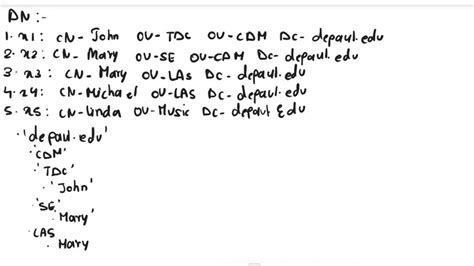 DN :-
1. x1 : CN- John OU- TDC OU- CDM DC- depaul.edu
2. x2 : CN- Mary OU-SE OU-CDM DC- depaul.edu
3. x3 : CN- Mary OU-LAs DC- depaul.edu
4. x4 : CN-Michael OU-LAS DC- depaul.edu
5. x5 : CN-Linda OU-Music DC- depaul Edu
'depaul.edu'
'CDM'
'TDC'
'John'
'SE'
Mary'
LAS
Mary